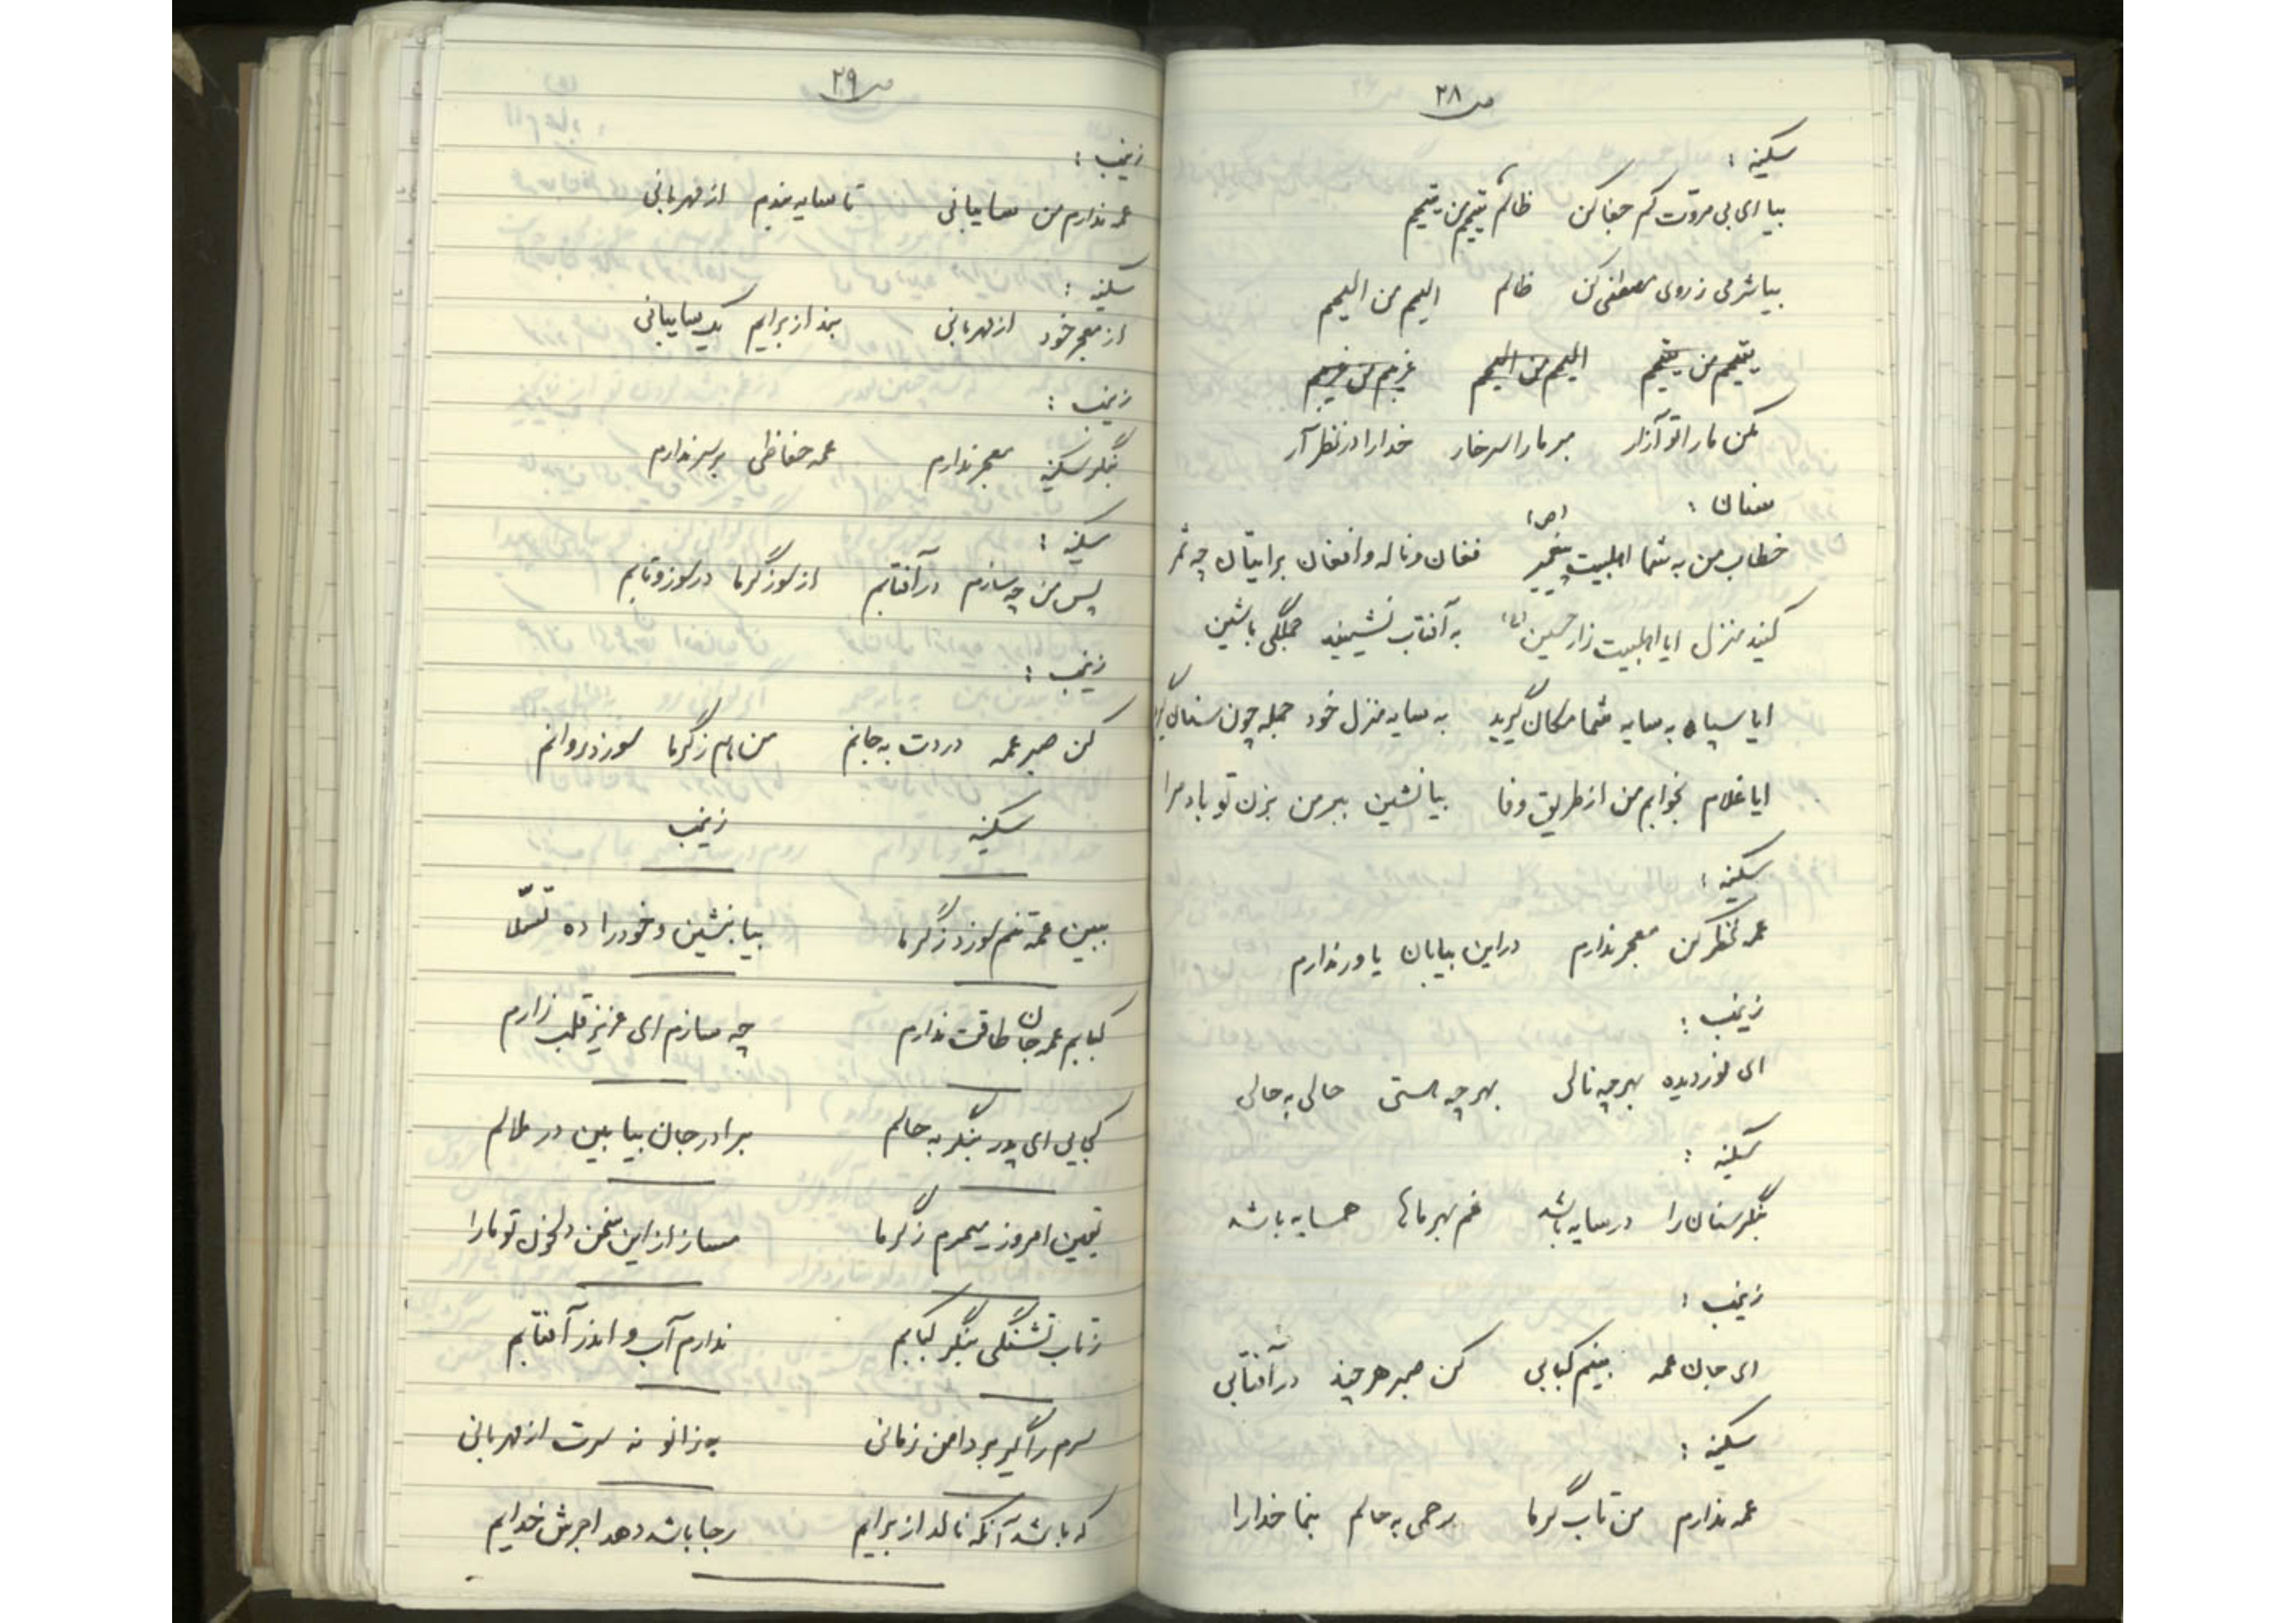 ص ۲۸
سکینه :
بیا ای بی مروّت کم جفا کن ظالم یتیمم من یتیمم
بیا شرمی ز روی مصطفی کن ظالم الیمم من الیمم
یتیمم من یتیمم الیمم من الیمم غریبم من غریبم
مکن ما را تو آزار مبر ما را سر خار خدا را در نظر آر
سنان :
خطاب من به شما اهلبیت پیغمبر (ص) فغان و ناله و افغان برایتان چه ثمر
کنید منزل ایا اهلبیت زار حسین (ع) به آفتاب نشینید جملگی باشین
ایا سپاه به سایه شما مکان گیرید به سایه منزل خود جمله چون سنان گیرید
ایا غلام بخوابم من از طریق وفا بیا نشین ببر من بزن تو باد مرا
سکینه :
عمه نظر کن معجر ندارم در این بیابان یاور ندارم
زینب :
ای نور دیده بهر چه نالی بهر چه هستی حالی به حالی
سکینه :
بنگر سنان را در سایه باشد غم بهر ماها همسایه باشد
زینب :
ای جان عمه بینم کبابی کن صبر هر چند در آفتابی
سکینه :
عمه ندارم من تاب گرما رحمی به حالم بنما خدا را
ص ۲۹
زینب :
عمه ندارم من سایبانی تا سایه بندم از مهربانی
سکینه :
از معجر خود از مهربانی بنداز برایم یک سایبانی
زینب :
بنگر سکینه معجر ندارم عمه حفاظی بر سر ندارم
سکینه :
پس من چه سازم در آفتابم از سوز گرما در سوز و تابم
زینب :
کن صبر عمه دردت به جانم من هم ز گرما سوزد روانم
سکینه زینب
ببین عمّه تنم سوزد ز گرما بیا بنشین و خود را ده تسلّا
کبابم عمه جان طاقت ندارم چه سازم ای عزیز قلب زارم
کجایی ای پدر بنگر به حالم برادر جان بیا بین در ملالم
یقین امروز میمیرم ز گرما مساز از این سخن دلخون تو ما را
ز تاب تشنگی بنگر کبابم ندارم آب و اندر آفتابم
سرم را گیر بر دامن زمانی به زانو نه سرت از مهربانی
که باشد آنکه نالد از برایم رجا باشد دهد اجرش خدایم